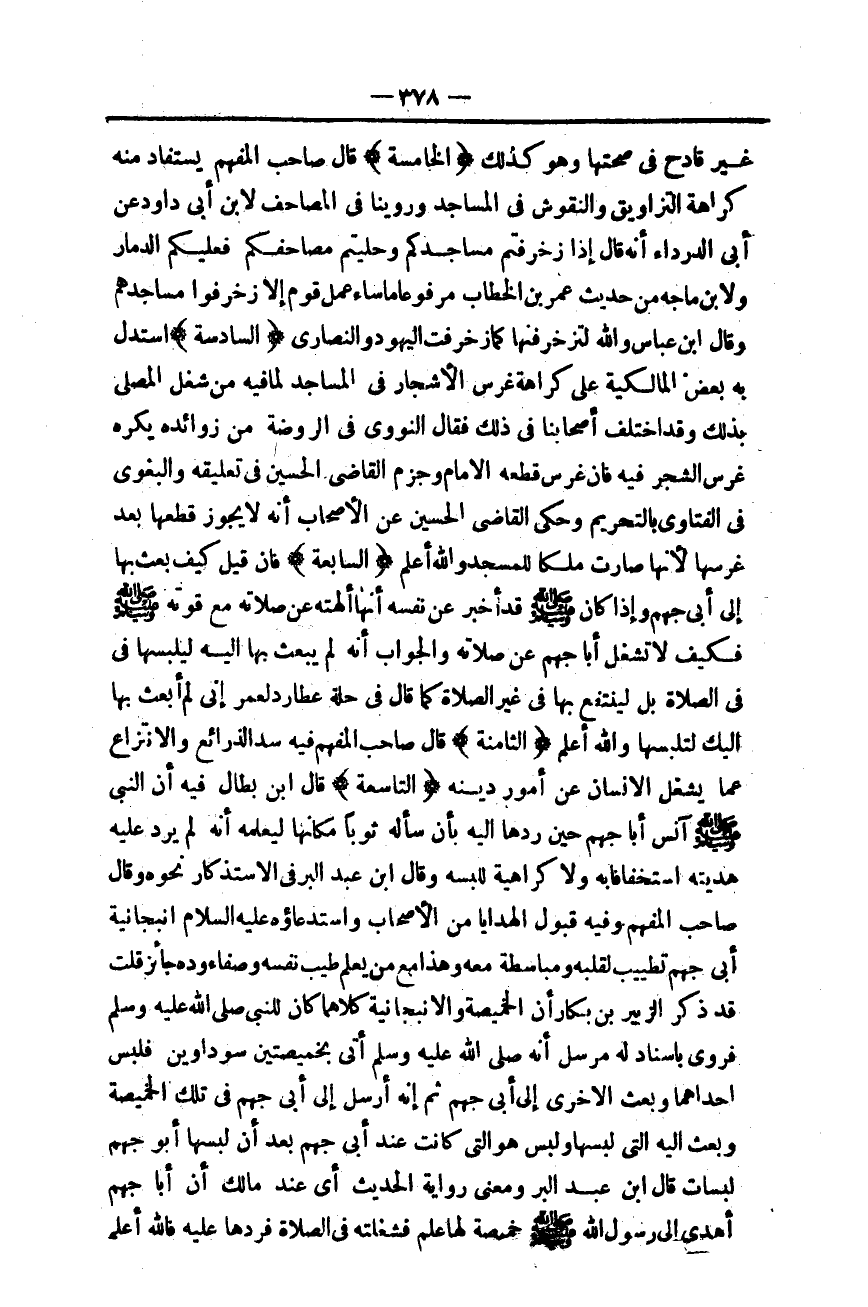 — ٣٧٨ —
غير قادح فى صحتها وهو كذلك ﴿ الخامسة ﴾ قال صاحب المفهم يستفاد منه
كراهة التزاويق والنقوش فى المساجد وروينا فى المصاحف لابن أبى داود عن
أبى الدرداء أنه قال إذا زخرفتم مساجدكم وحليتم مصاحفكم فعليكم الدمار
ولابن ماجه من حديث عمر بن الخطاب مرفوعا ماساء عمل قوم إلا زخرفوا مساجدهم
وقال ابن عباس والله لتزخرفنها كما زخرفت اليهود والنصارى ﴿ السادسة ﴾ استدل
به بعض المالكية على كراهة غرس الأشجار فى المساجد لما فيه من شغل المصلى
بذلك وقد اختلف أصحابنا فى ذلك فقال النووى فى الروضة من زوائده يكره
غرس الشجر فيه فان غرس قطعه الامام وجزم القاضى الحسين فى تعليقه والبغوى
فى الفتاوى بالتحريم وحكى القاضى الحسين عن الأصحاب أنه لا يجوز قطعها بعد
غرسها لأنها صارت ملكا للمسجد والله أعلم ﴿ السابعة ﴾ فان قيل كيف بعث بها
إلى أبى جهم وإذا كان ﷺ قد أخبر عن نفسه أنها ألهته عن صلاته مع قوته ﷺ
فكيف لا تشغل أبا جهم عن صلاته والجواب أنه لم يبعث بها اليه ليلبسها فى
فى الصلاة بل لينتفع بها فى غير الصلاة كما قال فى حلة عطارد لعمر إنى لم أبعث بها
اليك لتلبسها والله أعلم ﴿ الثامنة ﴾ قال صاحب المفهم فيه سد الذرائع والانتزاع
عما يشغل الانسان عن أمور دينه ﴿ التاسعة ﴾ قال ابن بطال فيه أن النبي
ﷺ آنس أبا جهم حين ردها اليه بأن سأله ثوباً مكانها ليعلمه أنه لم يرد عليه
هديته استخفافا به ولا كراهية للبسه وقال ابن عبد البر فى الاستذكار نحوه وقال
صاحب المفهم وفيه قبول الهدايا من الأصحاب واستدعاؤه عليه السلام انبجانية
أبى جهم تطييب لقلبه ومباسطة معه وهذا مع من يعلم طيب نفسه وصفاء وده جائز قلت
قد ذكر الزبير بن بكار أن الخميصة والانبجانية كلاهما كان للنبي صلى الله عليه وسلم
فروى باسناد له مرسل أنه صلى الله عليه وسلم أتى بخميصتين سوداوين فلبس
احداهما وبعث الاخرى إلى أبى جهم ثم إنه أرسل إلى أبى جهم فى تلك الخميصة
وبعث اليه التى لبسها ولبس هو التى كانت عند أبى جهم بعد أن لبسها أبو جهم
لبسات قال ابن عبد البر ومعنى رواية الحديث أى عند مالك أن أبا جهم
أهدى إلى رسول الله ﷺ خميصة لها علم فشغلته فى الصلاة فردها عليه فالله أعلم